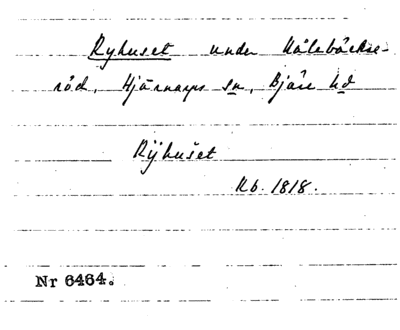 Ryhuset under Hålebäckse-
röd, Hjärnarps sn, Bjäre hd
Rÿhuset
Kb. 1818.
Nr 6464.